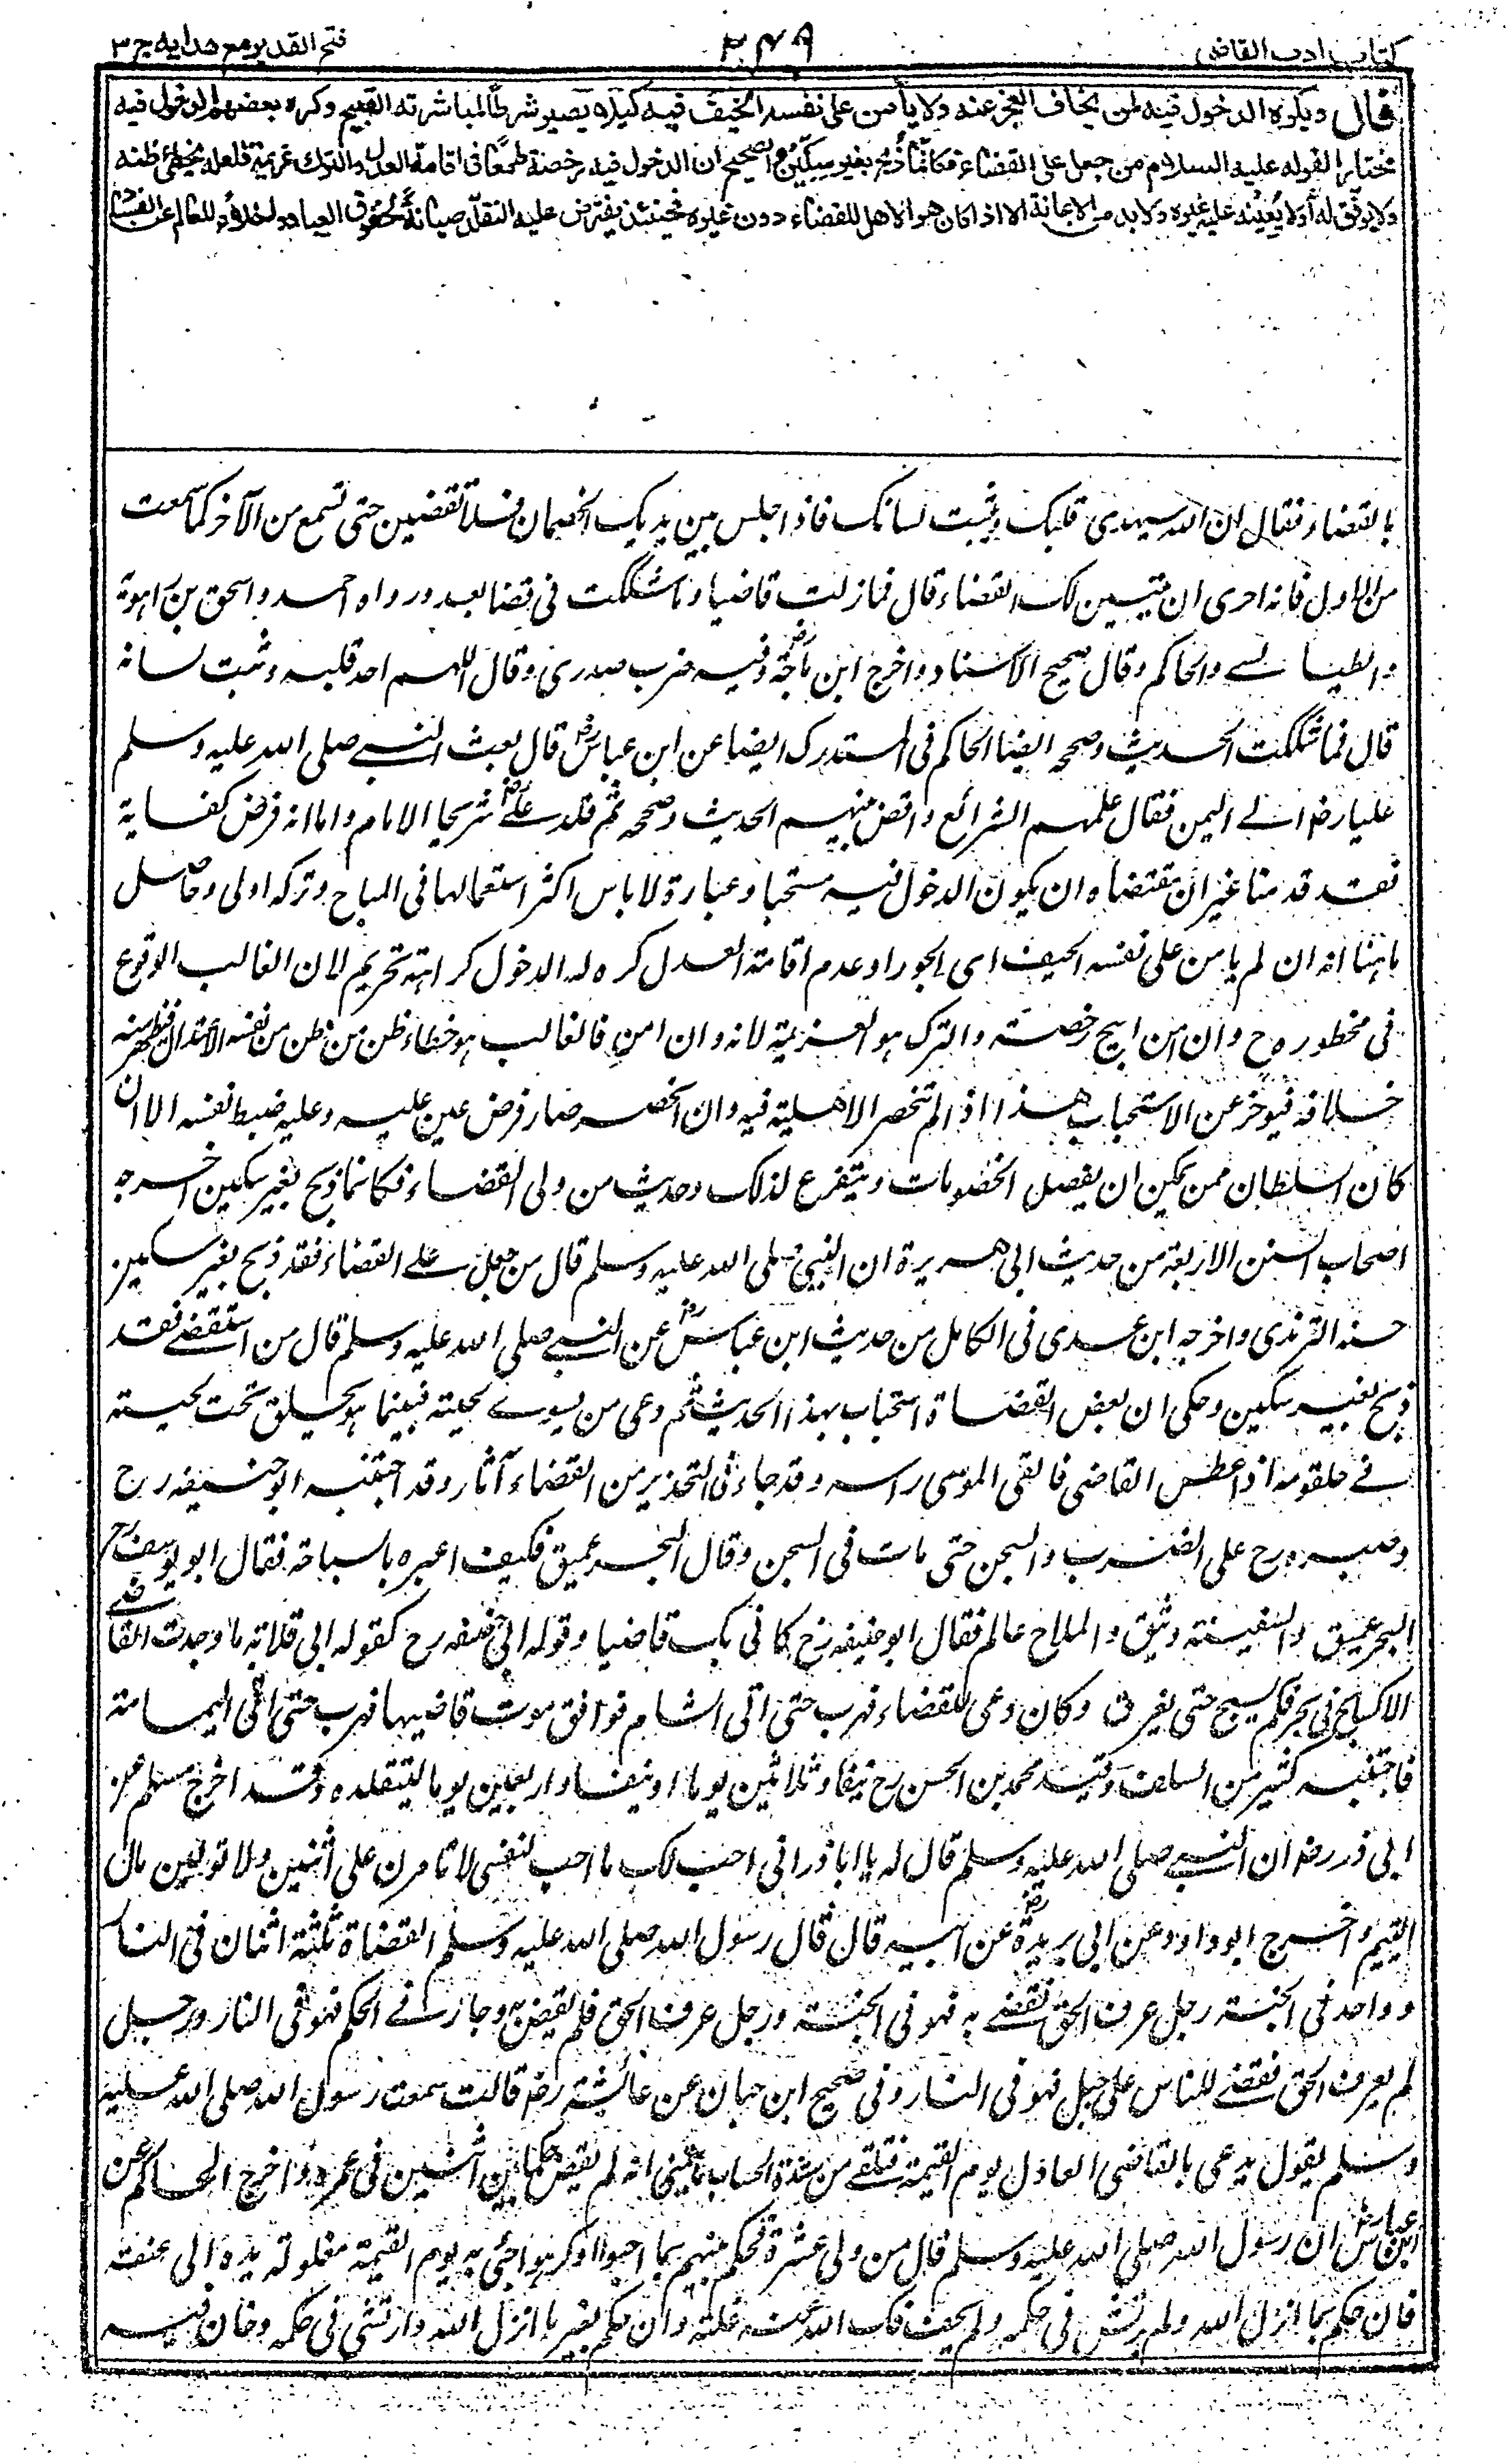 كتاب ادب القاضى
٣٤٩
فتح القدير مع هدايه ج ٣
قال ويكره الدخول فيه لمن يخاف العجز عنه ولا يأمن على نفسه الحيف فيه كيلا يصير شرطًا لمباشرته القبيح وكره بعضهم الدخول فيه
مختارا لقوله عليه السلام من جعل على القضاء فكانما ذُبح بغير سكين والصحيح ان الدخول فيه رخصة طمعًا فى اقامة العدل والترك عزيمة فلعله يخطئ ظنه
ولا يوفق له أو لا يُعينه عليه غيره ولا بد من الاعانة الا اذا كان هو الاهل للقضاء دون غيره فحينئذ يفترض عليه التقلّد صيانةً لحقوق العباد واخلاءً للعالم عن الفساد
بالقضاء فقال ان الله سيهدى قلبك ويثبت لسانك فاذا جلس بين يديك الخصمان فلا تقضين حتى تسمع من الآخر كما سمعت
من الاول فانه احرى ان يتبين لك القضاء قال فما زلت قاضيا وما شككت فى قضا بعد ورواه احمد واسحق بن راهوية
والطيالسے والحاكم وقال صحيح الاسناد واخرج ابن ماجة وفيه ضرب صدرى وقال اللهم اهد قلبه وثبت لسانه
قال فما شككت الحديث وصححه ايضا الحاكم فى المستدرك ايضا عن ابن عباس رض قال بعث النبے صلى الله عليه وسلم
عليا رض الے اليمن فقال علمهم الشرائع واقض بينهم الحديث وصححه ثم قلد علے رض شريحا الامام واما انه فرض كفاية
فقد قدمنا غير ان مقتضاه ان يكون الدخول فيه مستحبا وعبارة لا باس اكثر استعمالها فى المباح وتركه اولى وحاصل
ما هنا انه ان لم يامن على نفسه الحيف اى الجور او عدم اقامة العدل كره له الدخول كراهة تحريم لان الغالب الوقوع
فى محظوره ح وان امن ابيح رخصة والترك هو العزيمة لانه وان امن فالغالب هو خطاء ظن من ظن من نفسه الاعتدال فيظهر منه
خلافه فيوخر عن الاستحباب هذا اذا لم تنحصر الاهلية فيه وان انحصر صار فرض عين عليه وعليه ضبط نفسه الا ان
كان السلطان ممن يمكن ان يفصل الخصومات ويتفرغ لذلك وحديث من ولى القضاء فكانما ذبح بغير سكين اخرجه
اصحاب السنن الاربعة من حديث ابى هريرة ان النبى صلى الله عليه وسلم قال من جعل علے القضاء فقد ذبح بغير سكين
حسنه الترمذى واخرجه ابن عدى فى الكامل من حديث ابن عباس رض عن النبے صلى الله عليه وسلم قال من استقضے فقد
ذبح بغير سكين وحكى ان بعض القضاة استخاب بهذا الحديث ثم دعى من يسوے لحيته فبينما هو يحلق تحت لحيته
فے حلقومه اذ عطس القاضى فالقى الموسى راسه وقد جاء فى التحذير من القضاء آثار وقد اجتنبه ابو حنيفه رح
وصبره رح على الضرب والسجن حتى مات فى السجن وقال البحر عميق فكيف اعبره بالسباحة فقال ابو يوسف رح
البحر عميق والسفينة وثيق والملاح عالم فقال ابو حنيفه رح كانى بك قاضيا وقوله ابى حنيفه رح كقوله ابى قلابه ما وجدت القاضے
الا كسابح فى بحر فكم يسبح حتى يغرق وكان دعى للقضاء فهرب حتى اتى الشام فوافق موت قاضيها فهرب حتى اتى اليمامة
فاجتنبه كثير من السلف وقيد محمد بن الحسن رح نيفا وثلاثين يوما او نيفا واربعين يوما ليتقلده وقد اخرج مسلم عن
ابى ذر رض ان النبے صلى الله عليه وسلم قال له يا ابا ذر انى احب لك ما احب لنفسى لا تامرن على اثنين ولا تولين مال
اليتيم واخرج ابو داود عن ابى بريدة رض عن ابيه قال قال رسول الله صلى الله عليه وسلم القضاة ثلثة اثنان فى النار
وواحد فى الجنة رجل عرف الحق فقضے به فهو فى الجنة ورجل عرف الحق فلم يقض به وجار فے الحكم فهو فى النار ورجل
لم يعرف الحق فقضے للناس على جهل فهو فى النار وفى صحيح ابن حبان عن عائشة رض قالت سمعت رسول الله صلى الله عليه
وسلم يقول يدعى بالقاضى العادل يوم القيمة فيلقے من شدة الحساب ما يتمنى انه لم يقض حكما بين اثنين فى عمره واخرج الحاكم عن
ابن عباس رض ان رسول الله صلى الله عليه وسلم قال من ولى عشرة فحكم بينهم بما احبوا او كرهوا جئى به يوم القيمة مغلولة يده الى عنقه
فان حكم بما انزل الله ولم يرتش فى حكمه ولم يحف فك الله عنه غلته وان حكم بغير ما انزل الله وارتشى فى حكمه وخان فيه